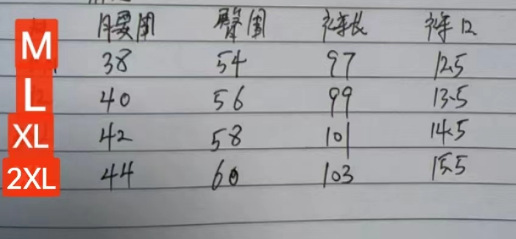 腰围 臀围 裤长 裤口
M 38 54 97 12.5
L 40 56 99 13.5
XL 42 58 101 14.5
2XL 44 60 103 15.5